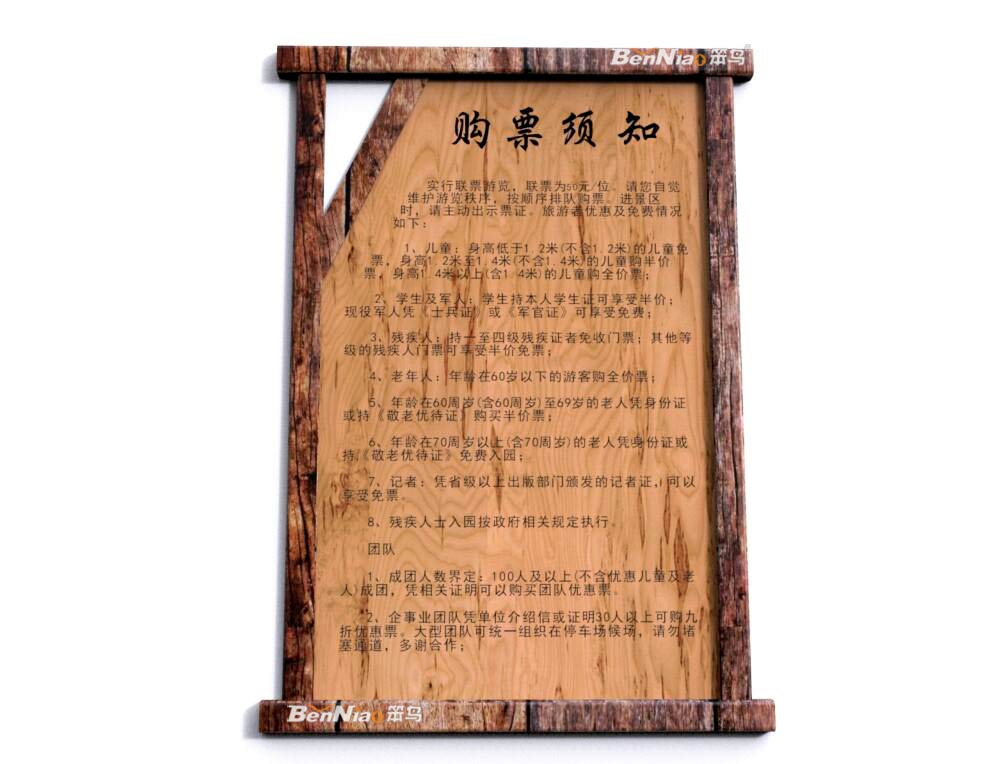 BenNiao笨鸟
购票须知
实行联票游览，联票为50元/位。请您自觉
维护游览秩序，按顺序排队购票。进景区
时，请主动出示票证。旅游者优惠及免费情况
如下：
1、儿童：身高低于1.2米(不含1.2米)的儿童免
票，身高1.2米至1.4米(不含1.4米)的儿童购半价
票，身高1.4米以上(含1.4米)的儿童购全价票；
2、学生及军人：学生持本人学生证可享受半价；
现役军人凭《士兵证》或《军官证》可享受免费；
3、残疾人：持一至四级残疾证者免收门票；其他等
级的残疾人门票可享受半价免票；
4、老年人：年龄在60岁以下的游客购全价票；
5、年龄在60周岁(含60周岁)至69岁的老人凭身份证
或持《敬老优待证》购买半价票；
6、年龄在70周岁以上(含70周岁)的老人凭身份证或
持《敬老优待证》免费入园；
7、记者：凭省级以上出版部门颁发的记者证，可以
享受免票。
8、残疾人士入园按政府相关规定执行。
团队
1、成团人数界定：100人及以上(不含优惠儿童及老
人)成团，凭相关证明可以购买团队优惠票。
2、企事业团队凭单位介绍信或证明30人以上可购九
折优惠票。大型团队可统一组织在停车场候场，请勿堵
塞通道，多谢合作；
BenNiao笨鸟